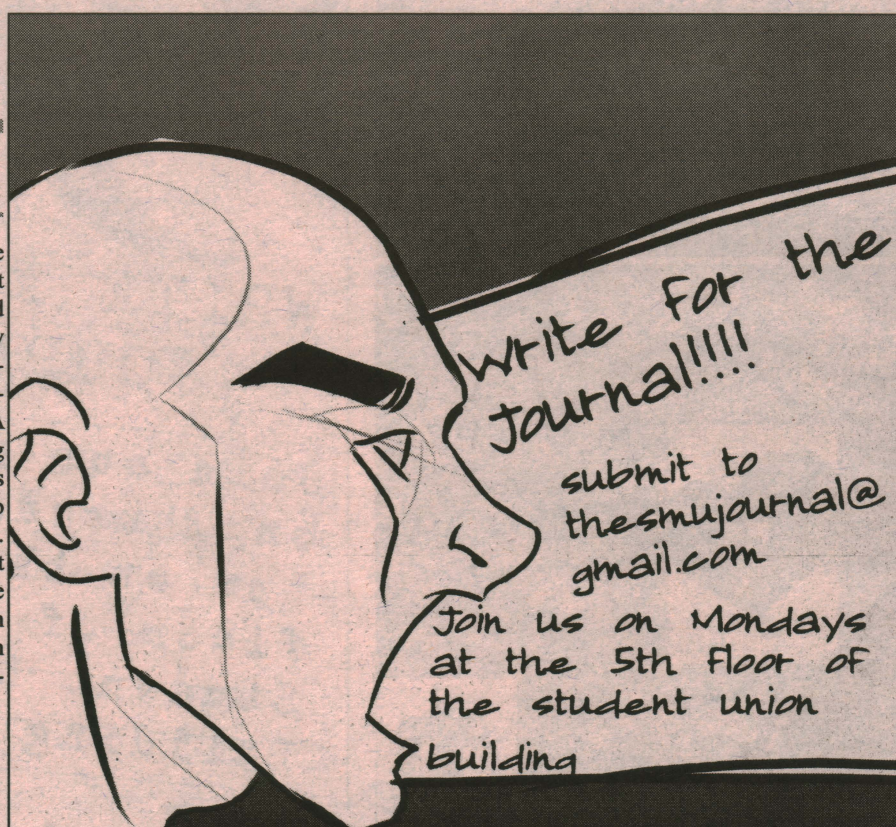 Write For the
Journal!!!!
submit to
thesmujournal@
gmail.com
Join us on Mondays
at the 5th Floor of
the student union
building